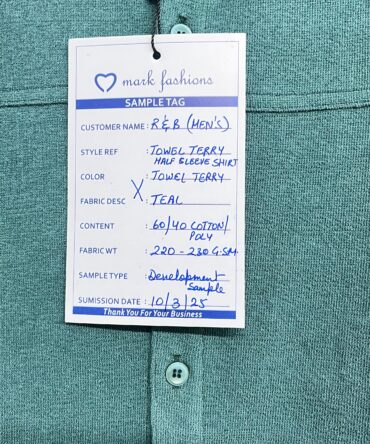 mark fashions
SAMPLE TAG
CUSTOMER NAME : R & B (MEN'S)
STYLE REF : TOWEL TERRY
HALF SLEEVE SHIRT
COLOR : TOWEL TERRY
FABRIC DESC X : TEAL
CONTENT : 60/40 COTTON/
POLY
FABRIC WT : 220 - 230 G.SM.
SAMPLE TYPE : Development
Sample
SUMISSION DATE : 10/3/25
Thank You For Your Business